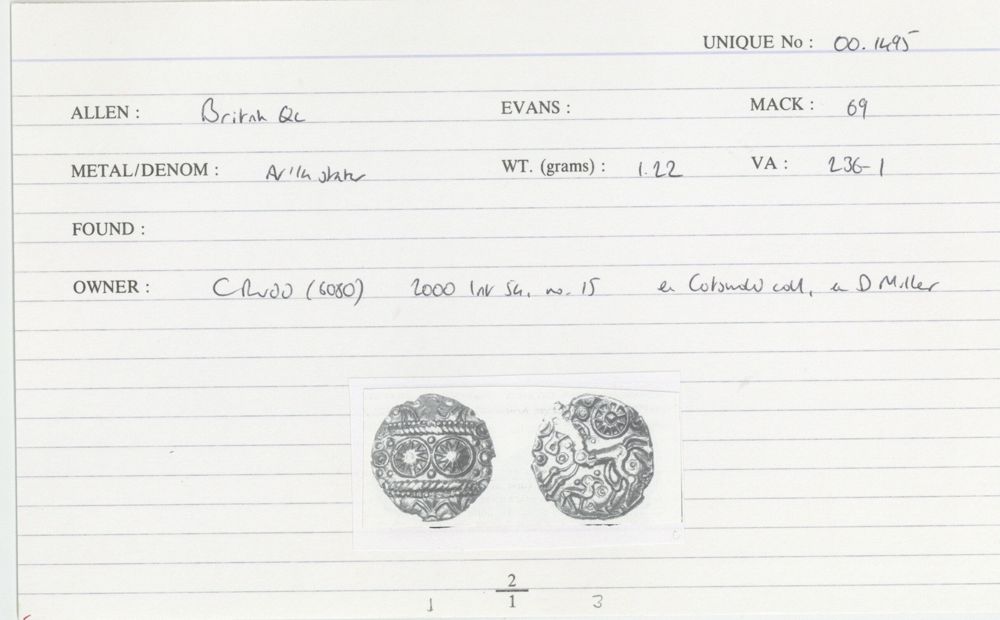 UNIQUE No : 00.1495
ALLEN : British Qc EVANS : MACK : 69
METAL/DENOM : AV 1/4 stater WT. (grams) : 1.22 VA : 236-1
FOUND :
OWNER : C Rudd (6080) 2000 no. 15 ex Cotswold coll, ex D Miller
2
1 1 3